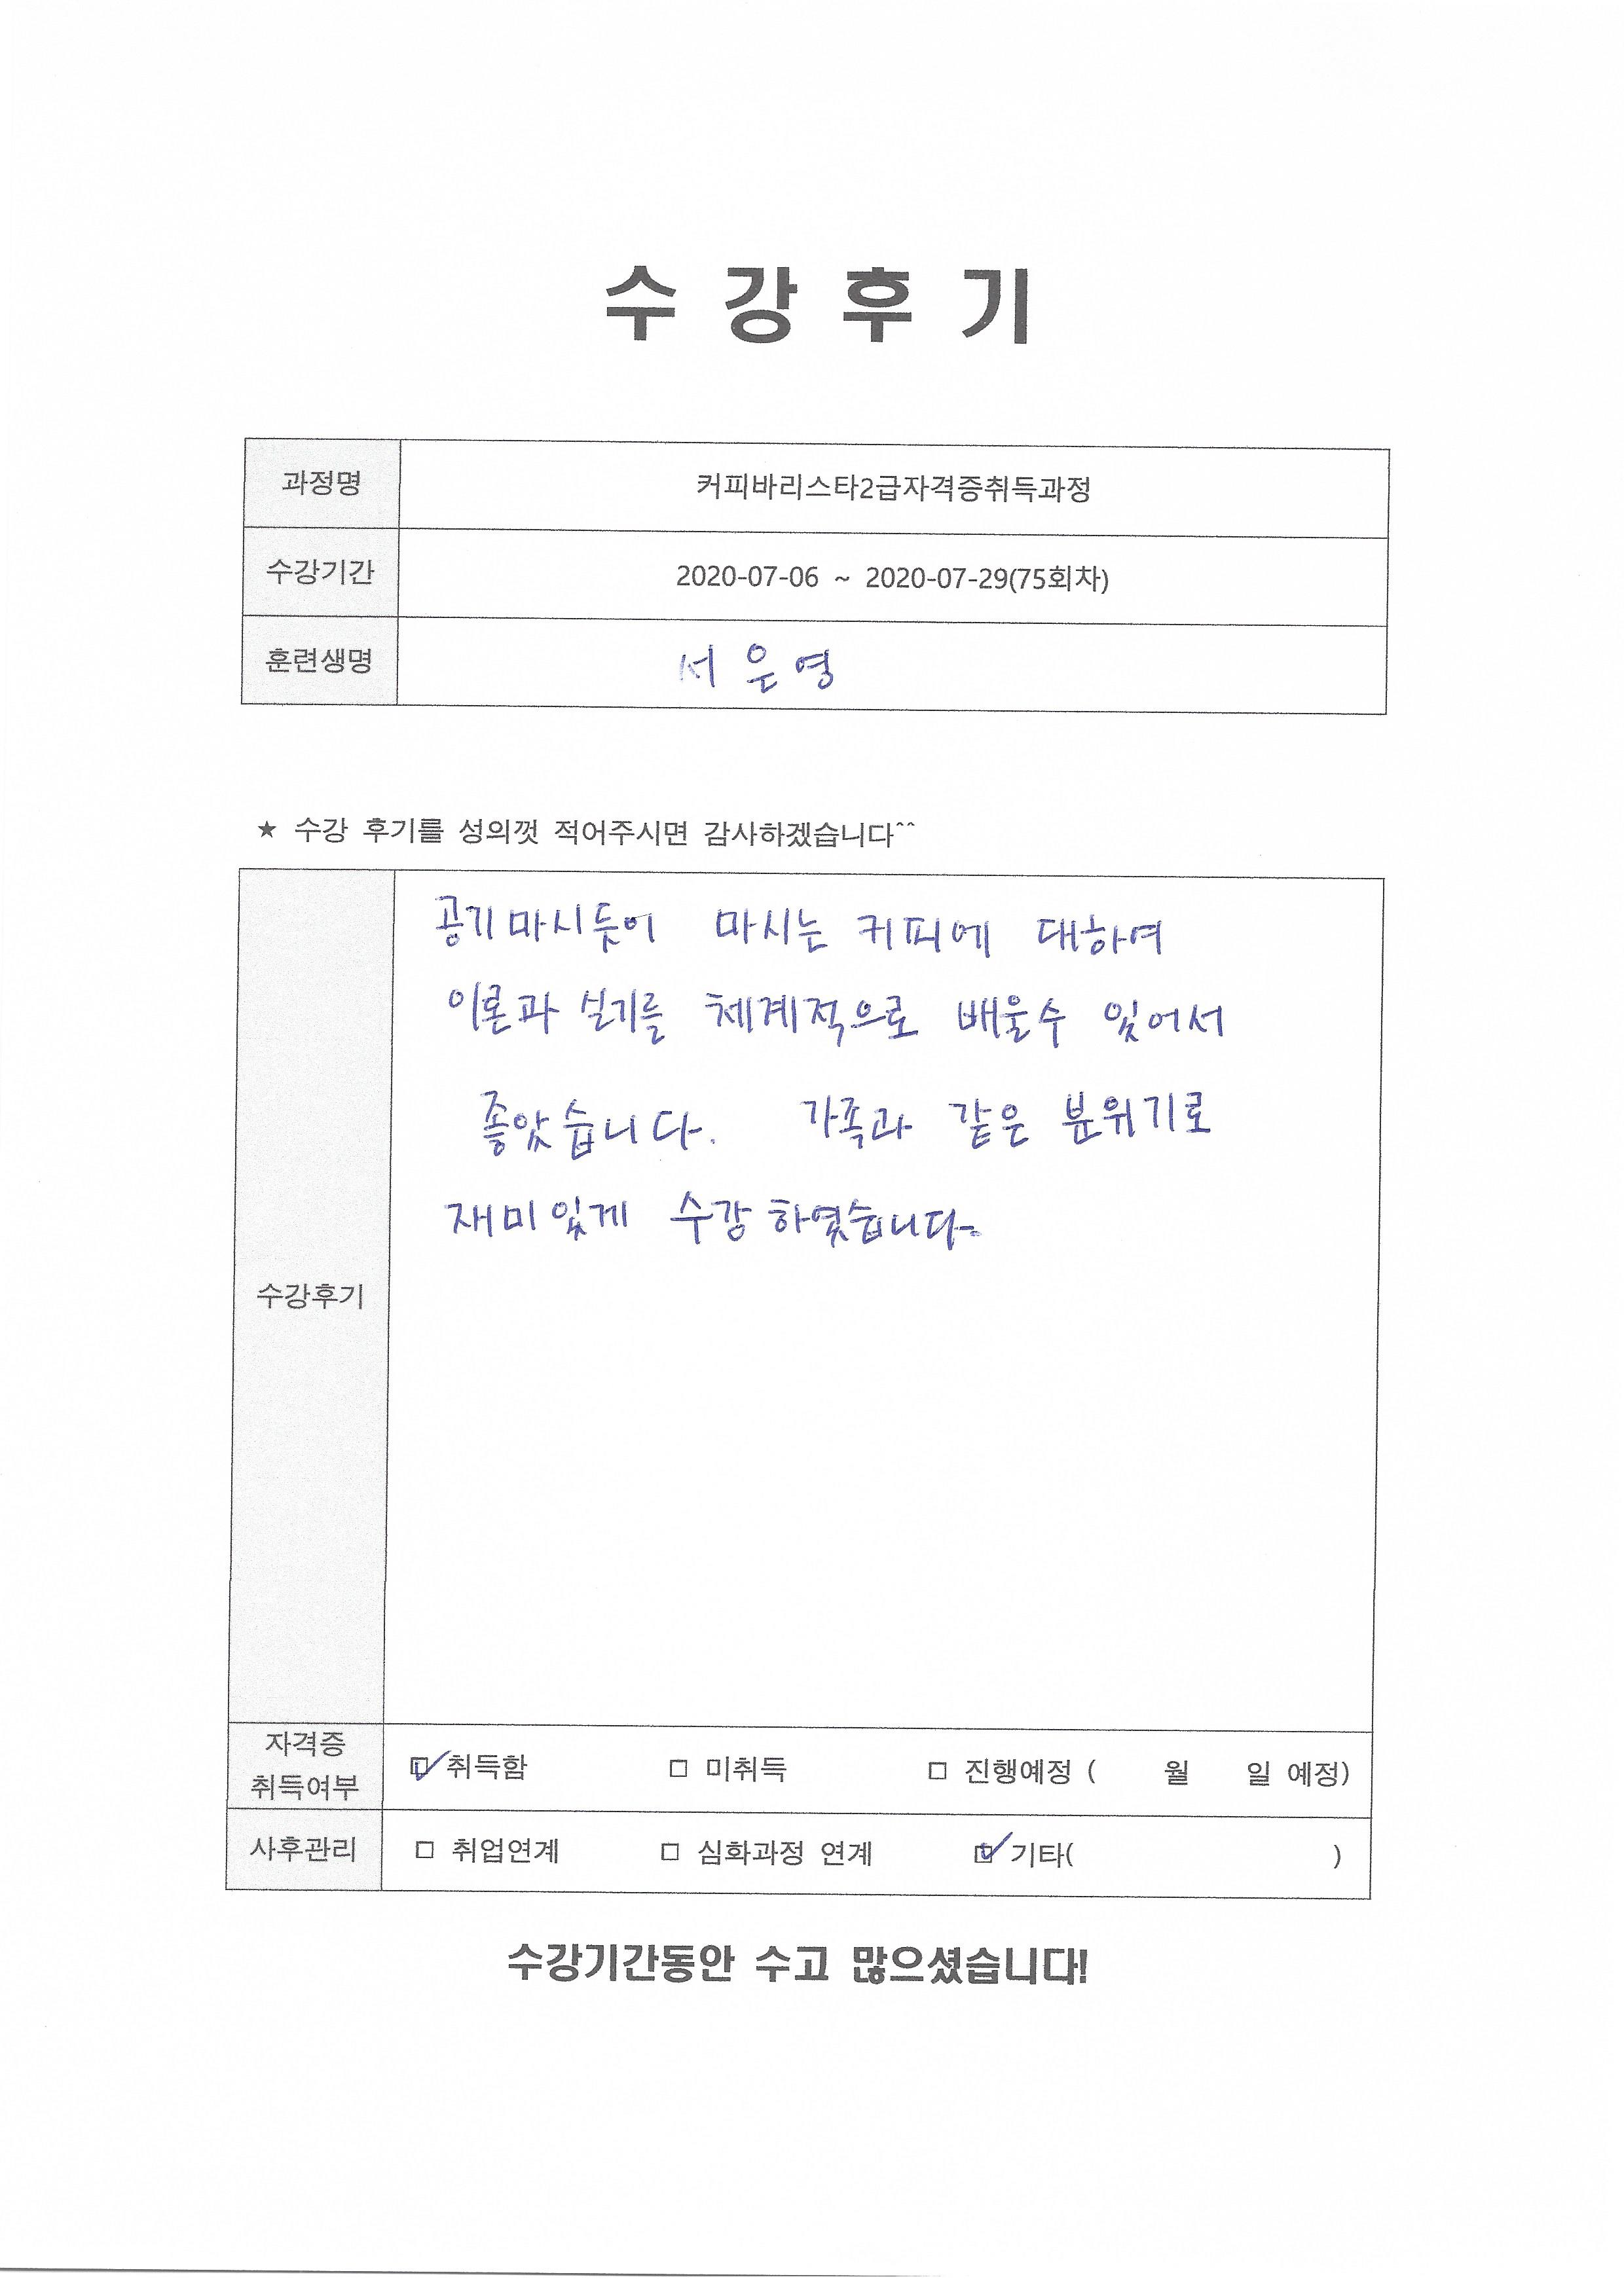 수 강 후 기
과정명 커피바리스타2급자격증취득과정
수강기간 2020-07-06 ~ 2020-07-29(75회차)
훈련생명 서 은 영
★ 수강 후기를 성의껏 적어주시면 감사하겠습니다^^
공기마시듯이 마시는 커피에 대하여
이론과 실기를 체계적으로 배울수 있어서
좋았습니다. 가족과 같은 분위기로
재미있게 수강 하였습니다.
수강후기
자격증
취득여부
☑ 취득함 □ 미취득 □ 진행예정 ( 월 일 예정)
사후관리 □ 취업연계 □ 심화과정 연계 ☑ 기타( )
수강기간동안 수고 많으셨습니다!